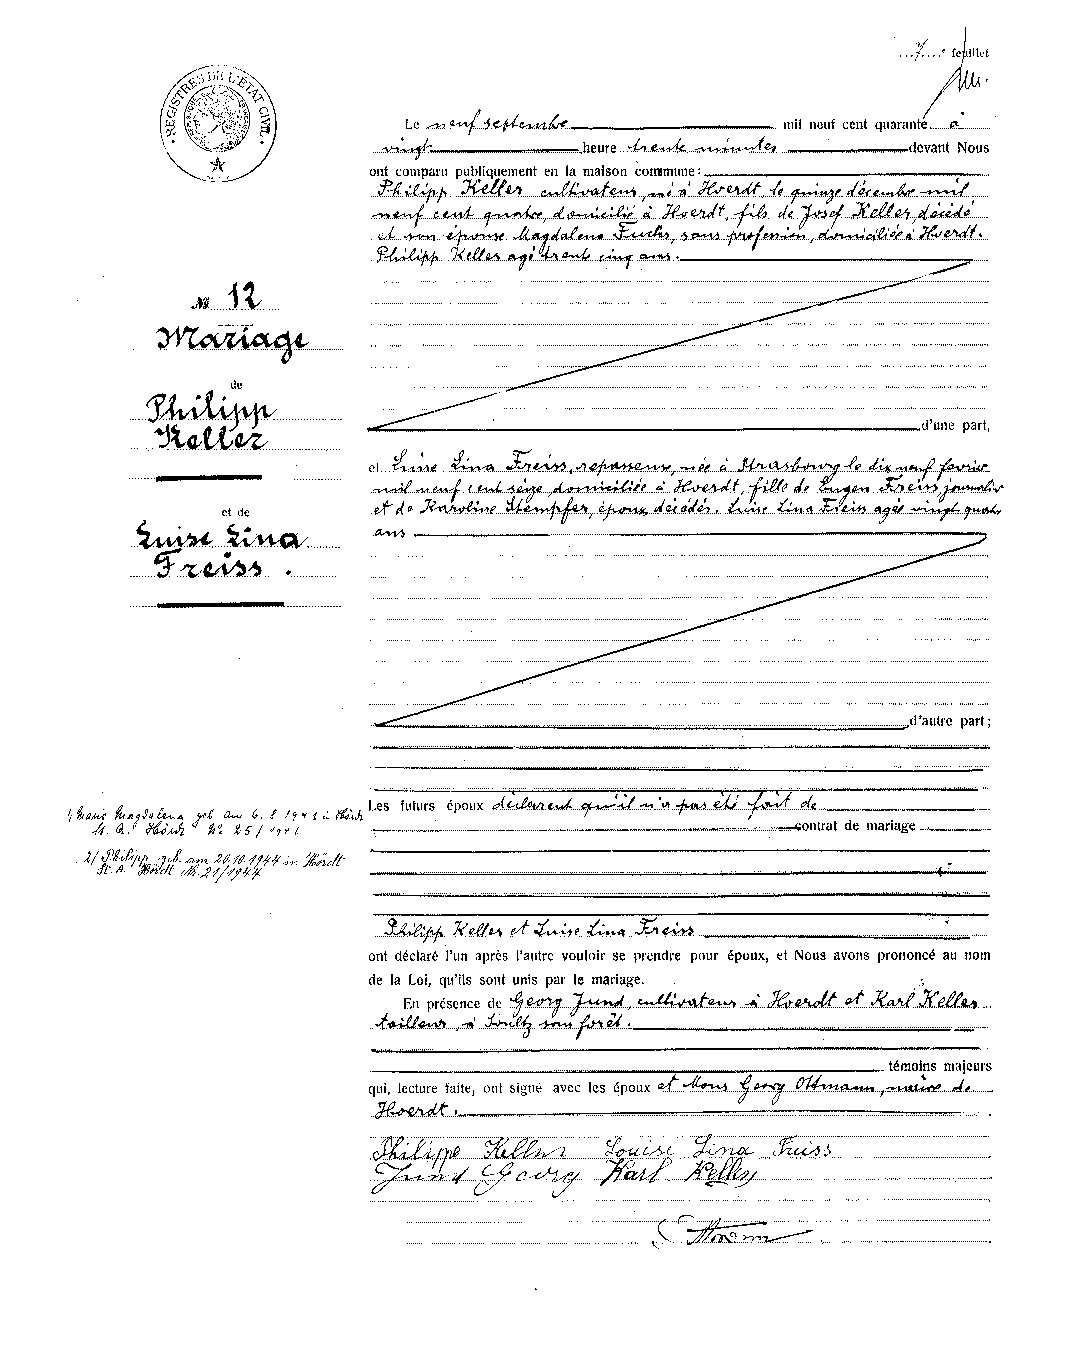 7e feuillet
REGISTRES DE L'ÉTAT CIVIL
Le neuf septembre mil neuf cent quarante à
vingt heure trente minutes devant Nous
ont comparu publiquement en la maison commune:
Philipp Keller cultivateur, né à Hoerdt le quinze décembre mil
neuf cent quatre, domicilié à Hoerdt, fils de Josef Keller, décédé
et son épouse Magdalena Fuchs, sans profession, domiciliée à Hoerdt.
Philipp Keller agé trent cinq ans.
№ 12
Mariage
de
Philipp
Keller
d'une part,
et Luise Lina Freiss, repasseuse, née à Strasbourg le dix neuf fevrier
mil neuf cent sèze, domiciliée à Hoerdt, fille de Eugen Freiss journalier
et de Karoline Stempfer, époux décédés. Luise Lina Freiss agée vingt quatre
ans
et de
Luise Lina
Freiss.
d'autre part;
Les futurs époux déclarent qu'il n'a pas été fait de
contrat de mariage
1/ Maria Magdalena geb. am 6. 8. 1941 in Hördt
St. A. Hördt Nr. 25/1941
2/ Philipp geb. am 20.10.1944 in Hördt
St. A. Hördt Nr. 21/1944
Philipp Keller et Luise Lina Freiss
ont déclaré l'un après l'autre vouloir se prendre pour époux, et Nous avons prononcé au nom
de la Loi, qu'ils sont unis par le mariage.
En présence de Georg Jund, cultivateur à Hoerdt et Karl Keller
tailleur, à Soultz sous forêt.
témoins majeurs
qui, lecture faite, ont signé avec les époux et Nous Georg Ottmann, maire de
Hoerdt.
Philippe Keller Louise Lina Freiss
Jund Georg Karl Keller